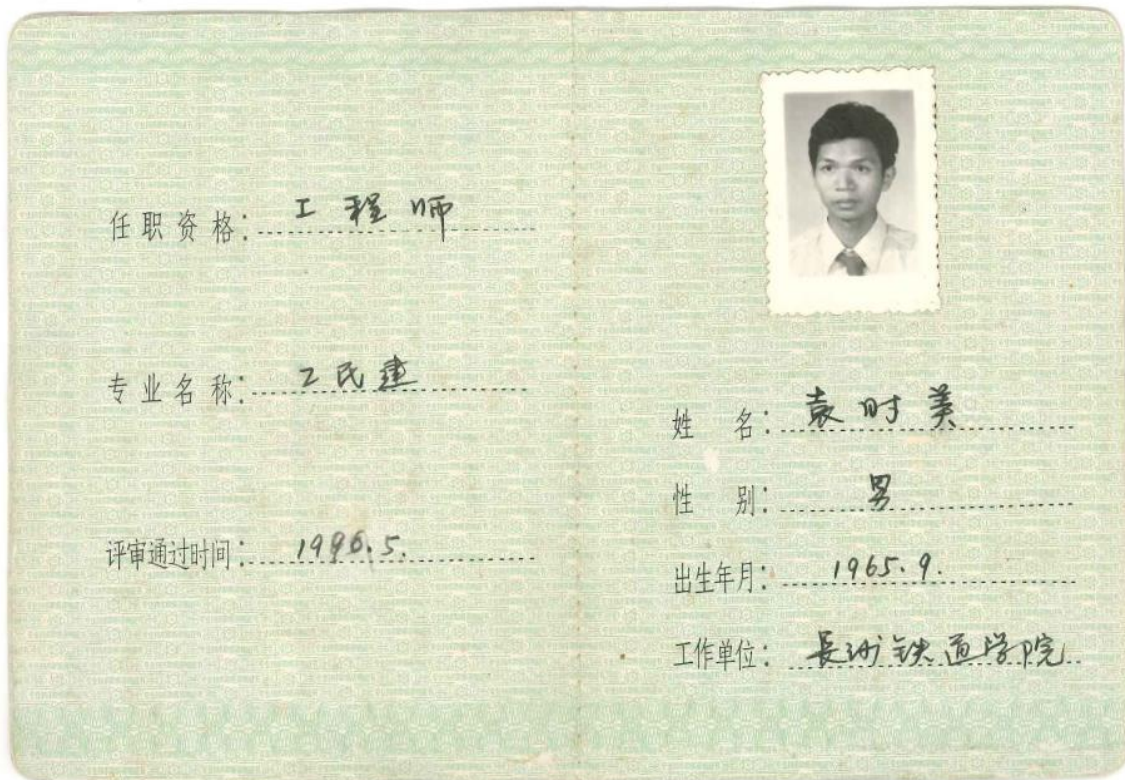 任职资格：工程师
专业名称：工民建
评审通过时间：1996.5.
姓 名：袁时美
性 别：男
出生年月：1965.9.
工作单位：長沙铁道学院